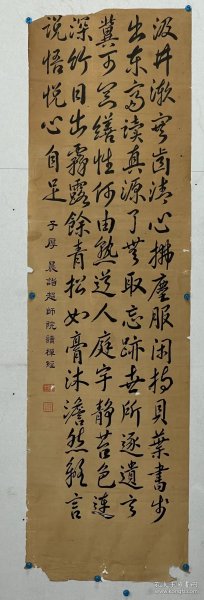 汲井漱寒齒清心拂塵服閑持貝葉書步
出東齋讀真源了無取忘跡世所逐遺言
冀可冥繕性何由熟道人庭宇靜苔色連
深竹日出霧露餘青松如膏沐澹然離言
說悟悅心自足
子厚 晨詣超師院讀禪經